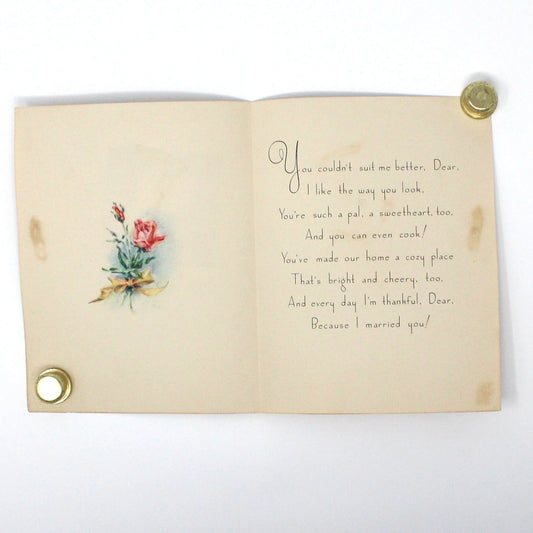 You couldn't suit me better, Dear,
I like the way you look,
You're such a pal, a sweetheart, too,
And you can even cook!
You've made our home a cozy place
That's bright and cheery, too,
And every day I'm thankful, Dear,
Because I married you!